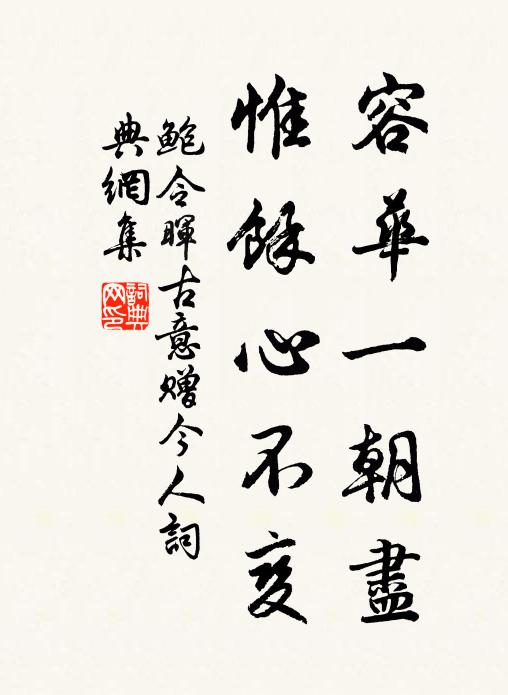 容華一朝盡
惟餘心不变
鲍令暉古意赠今人詞
典網集
詞典
网印